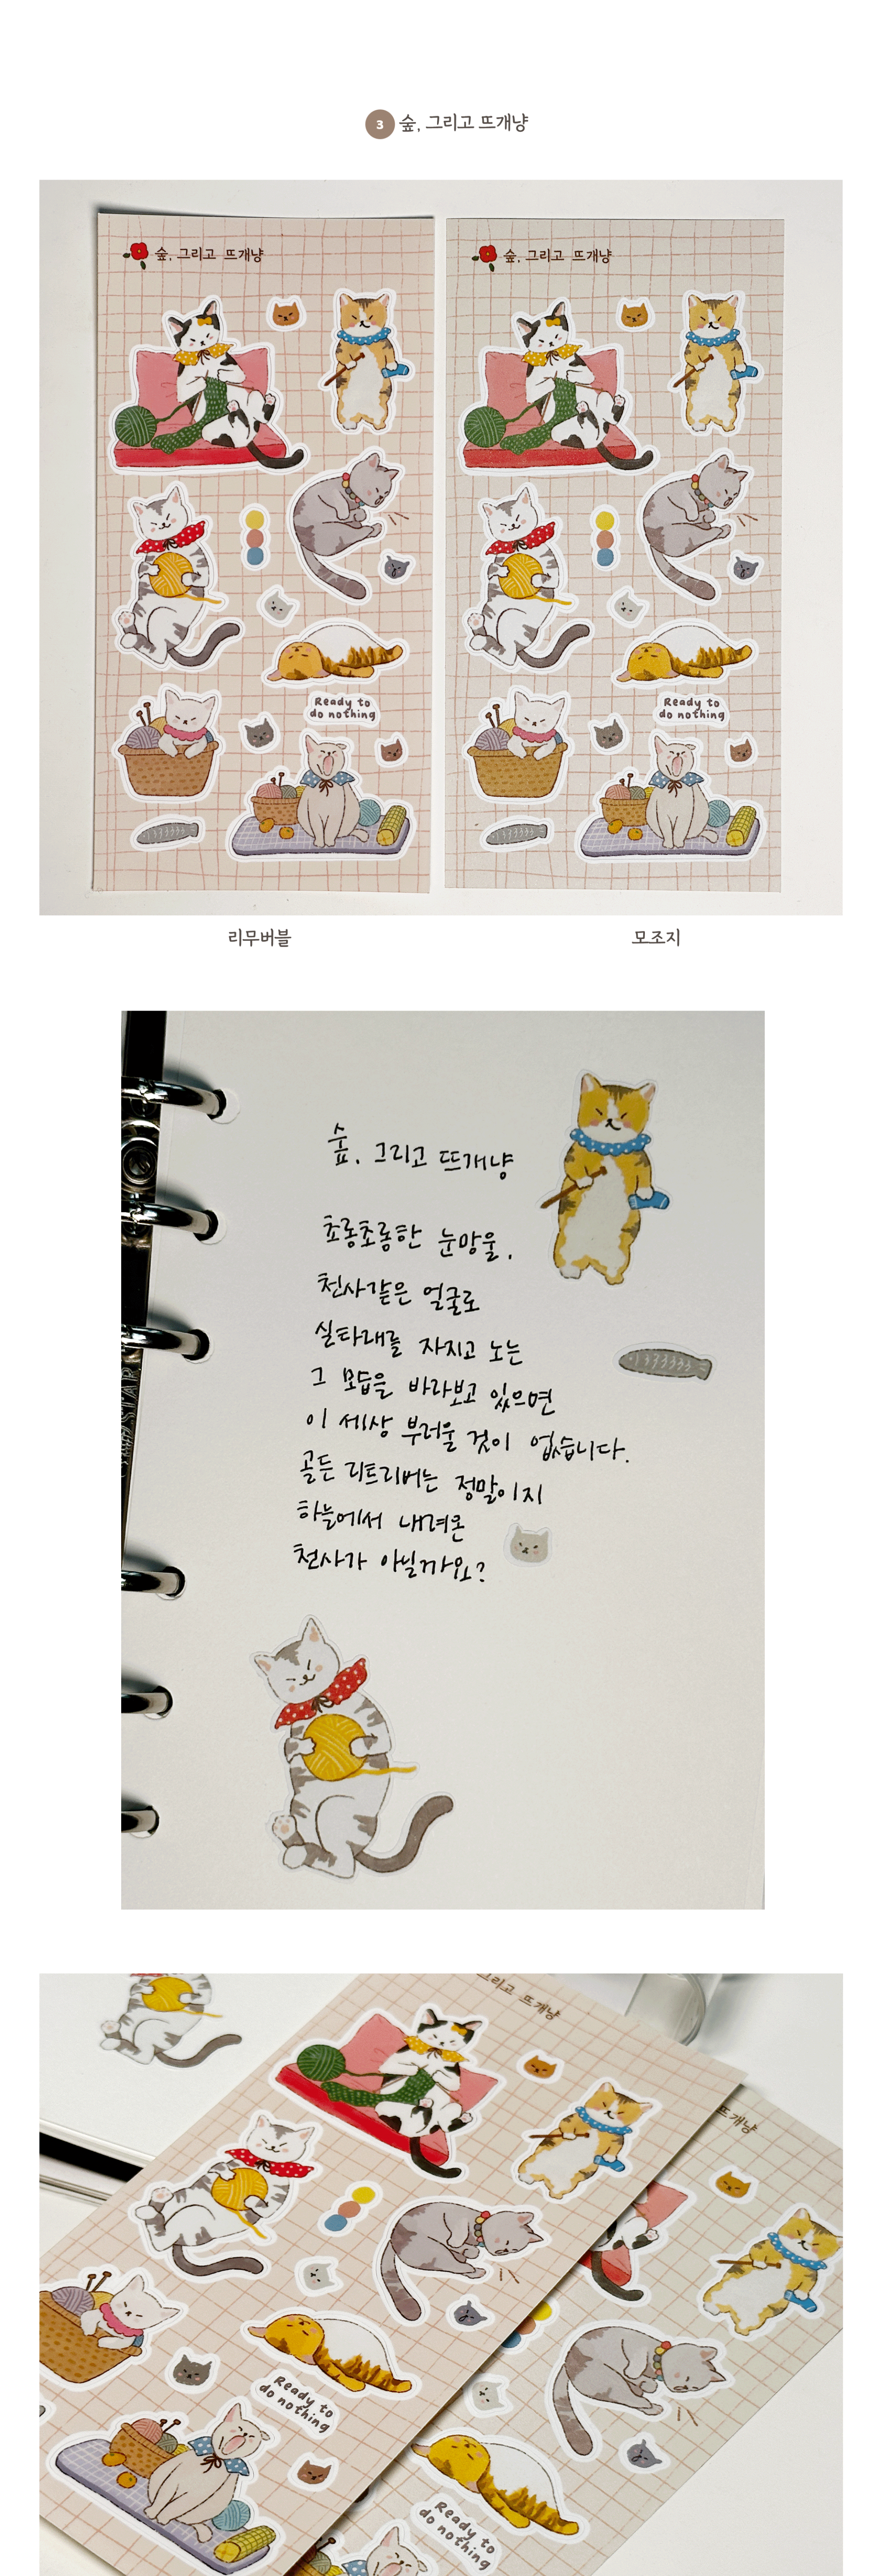 3 숲, 그리고 뜨개냥
숲, 그리고 뜨개냥
숲, 그리고 뜨개냥
Ready to
do nothing
Ready to
do nothing
리무버블
모조지
숲, 그리고 뜨개냥
초롱초롱한 눈망울,
천사같은 얼굴로
실타래를 자지고 노는
그 모습을 바라보고 있으면
이 세상 부러울 것이 없습니다.
골든 리트리버는 정말이지
하늘에서 내려온
천사가 아닐까요?
그리고 뜨개냥
뜨개냥
Ready to
do nothing
Ready to
do nothing